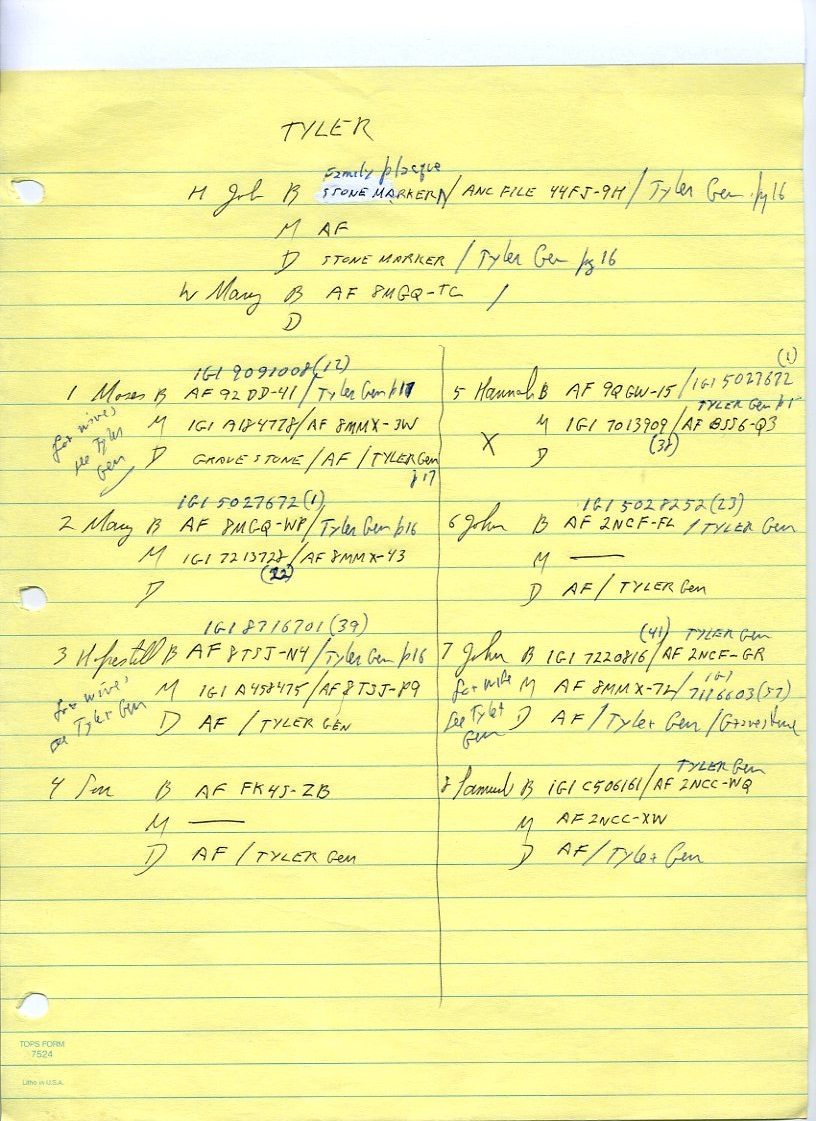 TYLER
Family plaque
H John B STONE MARKER / ANC FILE 44FJ-9H / Tyler Gen pg 16
M AF
D STONE MARKER / Tyler Gen pg 16
W Mary B AF 8MGQ-TC /
D
IGI 9091008 (12)
1 Moses B AF 92DD-41 / Tyler Gen p17
for wives see Tyler Gen
M IGI A184778 / AF 8MMX-3W
D GRAVE STONE / AF / TYLER Gen
p 17
IGI 5027672 (1)
2 Mary B AF 8MGQ-WP / Tyler Gen p16
M IGI 7213728 / AF 8MMX-43
(22)
D
IGI 8716701 (39)
3 Hopestill B AF 8TSJ-N4 / Tyler Gen p16
for wives see Tyler Gen
M IGI A458475 / AF 8TSJ-P9
D AF / TYLER GEN
4 Son B AF FK4J-ZB
M —
D AF / TYLER Gen
(1)
5 Hannah B AF 9QGW-15 / IGI 5027672
TYLER Gen p1
X M IGI 7013909 / AF BSS6-Q3
(38)
D
IGI 5028252 (23)
6 John B AF 2NCF-FL / TYLER Gen
M —
D AF / TYLER Gen
(41) TYLER Gen
7 John B IGI 7220816 / AF 2NCF-GR
for wife see Tyler Gen
IGI
M AF 8MMX-7L / 7116603 (57)
D AF / Tyler Gen / Gravestone
TYLER Gen
8 Samuel B IGI C506161 / AF 2NCC-WQ
M AF 2NCC-XW
D AF / Tyler Gen
TOPS FORM
7524
Litho in U.S.A.